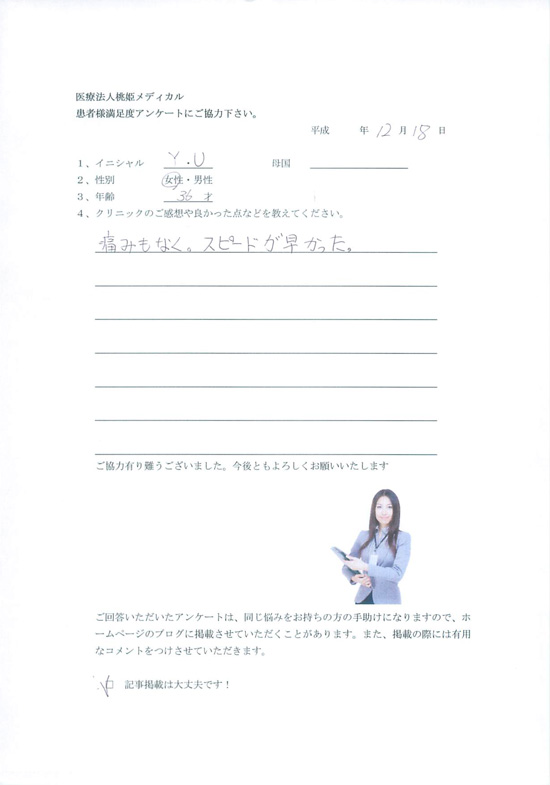 医療法人桃姫メディカル
患者様満足度アンケートにご協力下さい。
平成 年 12 月 18 日
1、イニシャル Y.U 母国
2、性別 女性・男性
3、年齢 36 才
4、クリニックのご感想や良かった点などを教えてください。
痛みもなく。スピードが早かった。
ご協力有り難うございました。今後ともよろしくお願いいたします
ご回答いただいたアンケートは、同じ悩みをお持ちの方の手助けになりますので、ホ
ームページのブログに掲載させていただくことがあります。また、掲載の際には有用
なコメントをつけさせていただきます。
□ 記事掲載は大丈夫です！